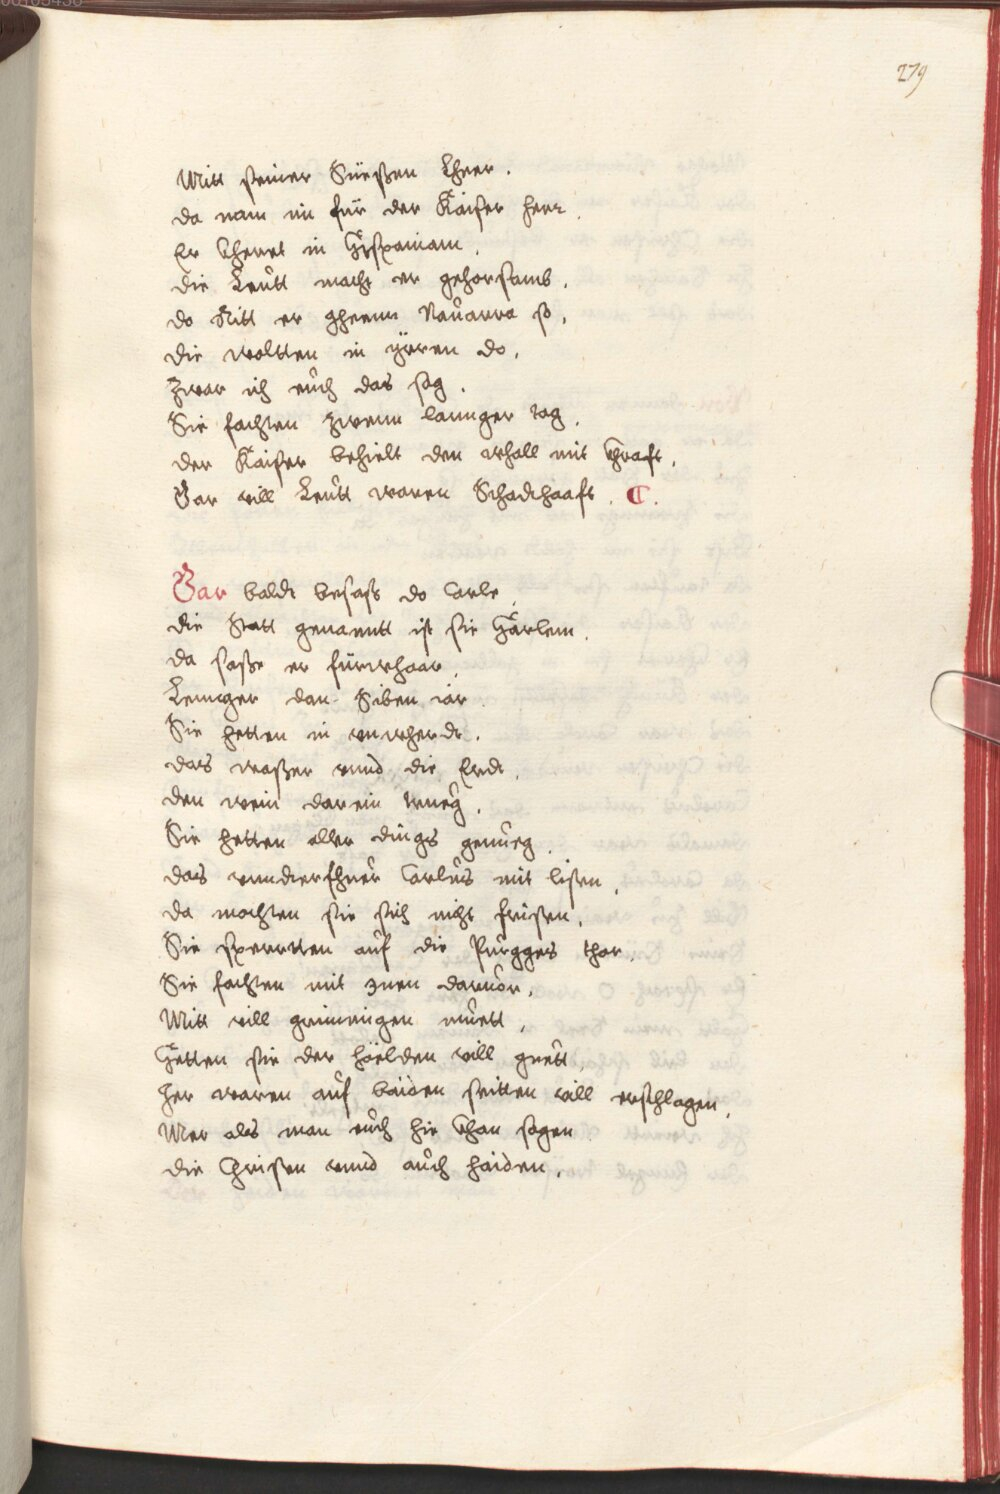 279
Mitt seiner Süessen Lheer.
da nam im für der Kaiser herr.
Er Kheret in Hyspaniam.
die Leütt macht er gehorsamb.
do Ritt er gheenn Nauarra so,
die woltten in yrren do.
Zwar ich eüch das sag.
Sie fachten zwenn lannger tag.
der Kaiser behielt den whall mit Khrafft.
Gar vill Leütt waren Schadthaafft.
Gar baldt besass do Carle.
die Statt genanntt ist sie Härlem.
da sasse er fürwhaar.
Lennger dan Siben iar.
Sie hetten in vnwherdt.
das wasser vnnd die Erdt.
den wein darein trueg.
Sie hetten aller dings genueg.
das vnndterfhuer Carlüs mit listen.
da mochten sie sich nicht fristen.
Sie sperrtten auf die Pürgges thor.
Sie fachten mit Inen daruor.
Mitt vill grimmigen müett.
Hetten sie der hoelden vill guett.
her waren auf baiden seitten vill erschlagen.
Mer als man eüch hie Khan sagen.
die Christen vnnd auch haiden.